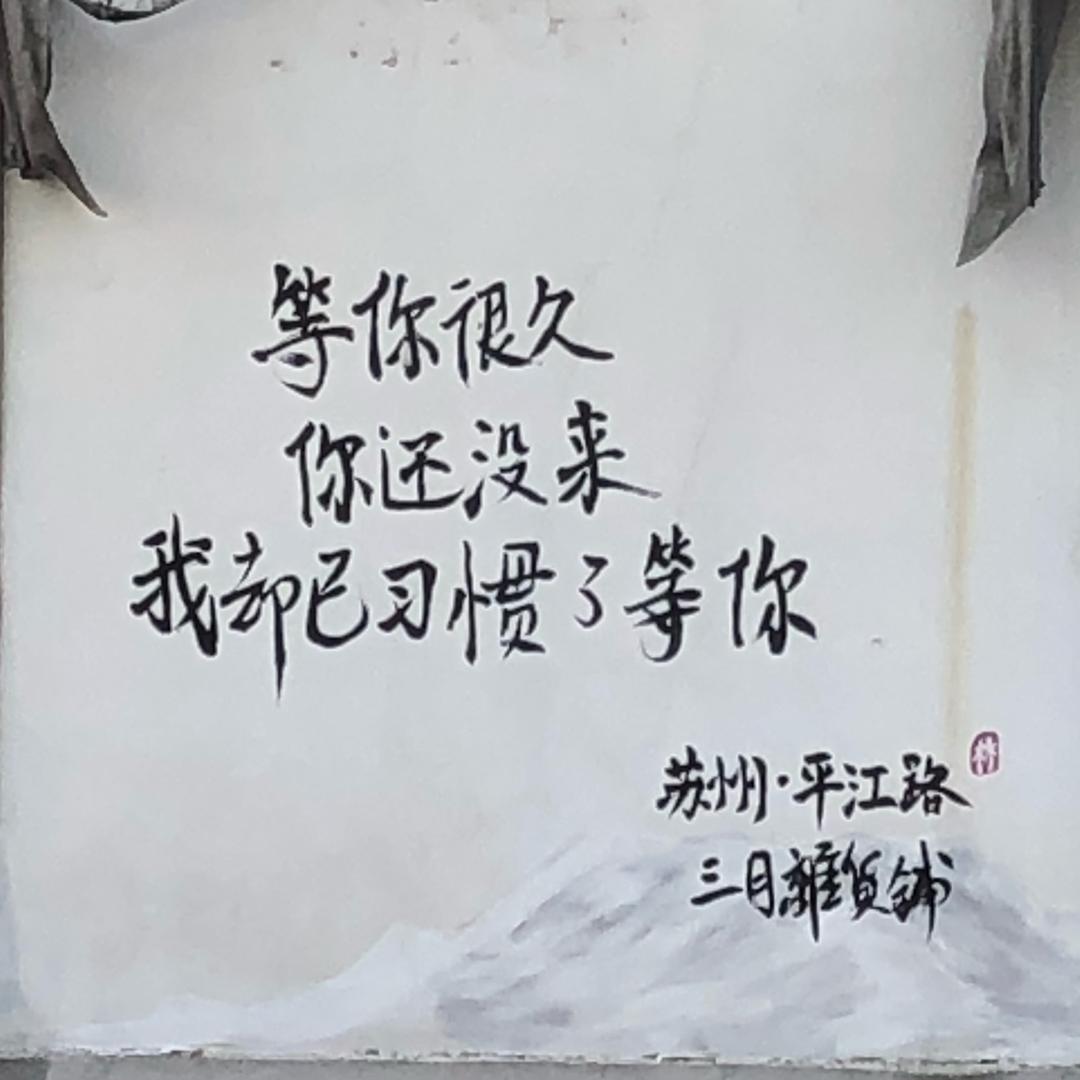 等你很久
你还没来
我却已习惯了等你
苏州·平江路
林
三月雜貨鋪